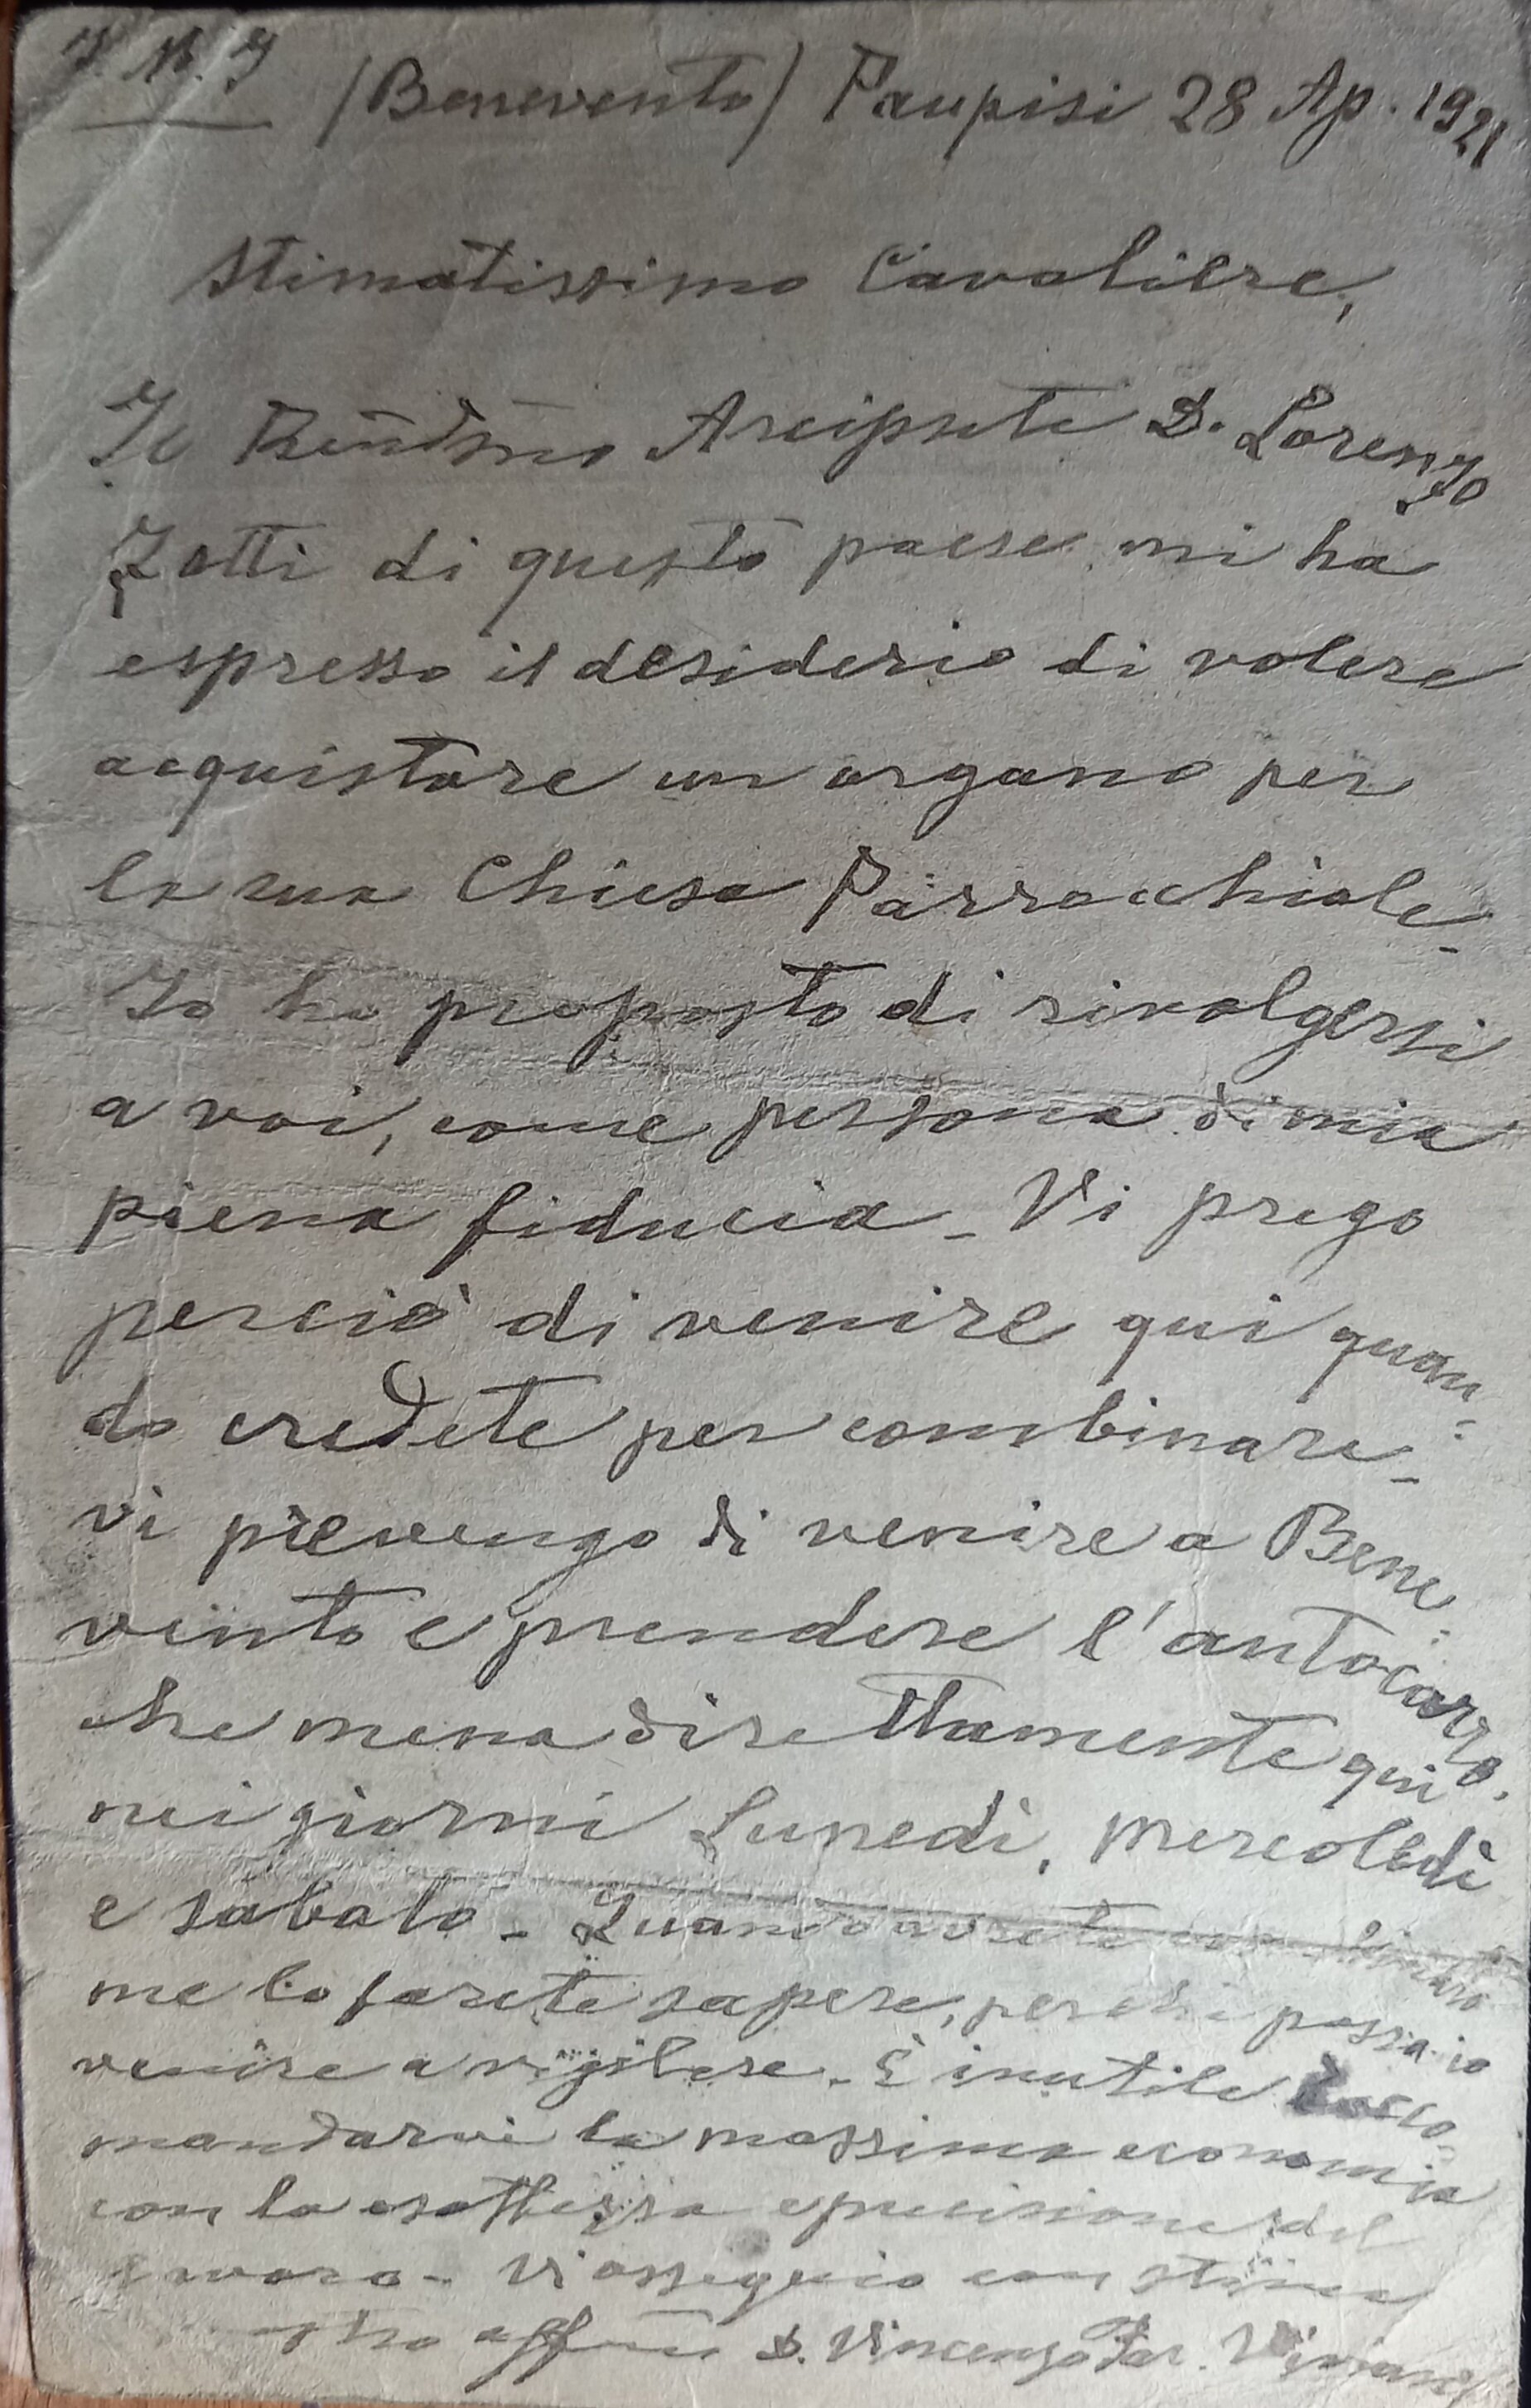 J. M. J
(Benevento) Paupisi 28 Ap. 1921
Stimatissimo Cavaliere,
Il Rendmo Arciprete D. Lorenzo
Zotti di questo paese mi ha
espresso il desiderio di volere
acquistare un organo per
la sua Chiesa Parrocchiale_
Io ho proposto di rivolgersi
a voi, come persona di mia
piena fiducia_ Vi prego
perciò di venire qui quan=
do credete per combinare_
Vi prevengo di venire a Bene=
vento e prendere l'autocarro,
che mena direttamente qui
nei giorni Lunedì, Mercoledì
e sabato_ Quando avrete
me lo farete sapere, perché possa io
venire a vigilare_ È inutile
mandarvi la massima economia
con la esattezza e precisione del
lavoro_ Vi ossequio con stima
D. Vincenzo